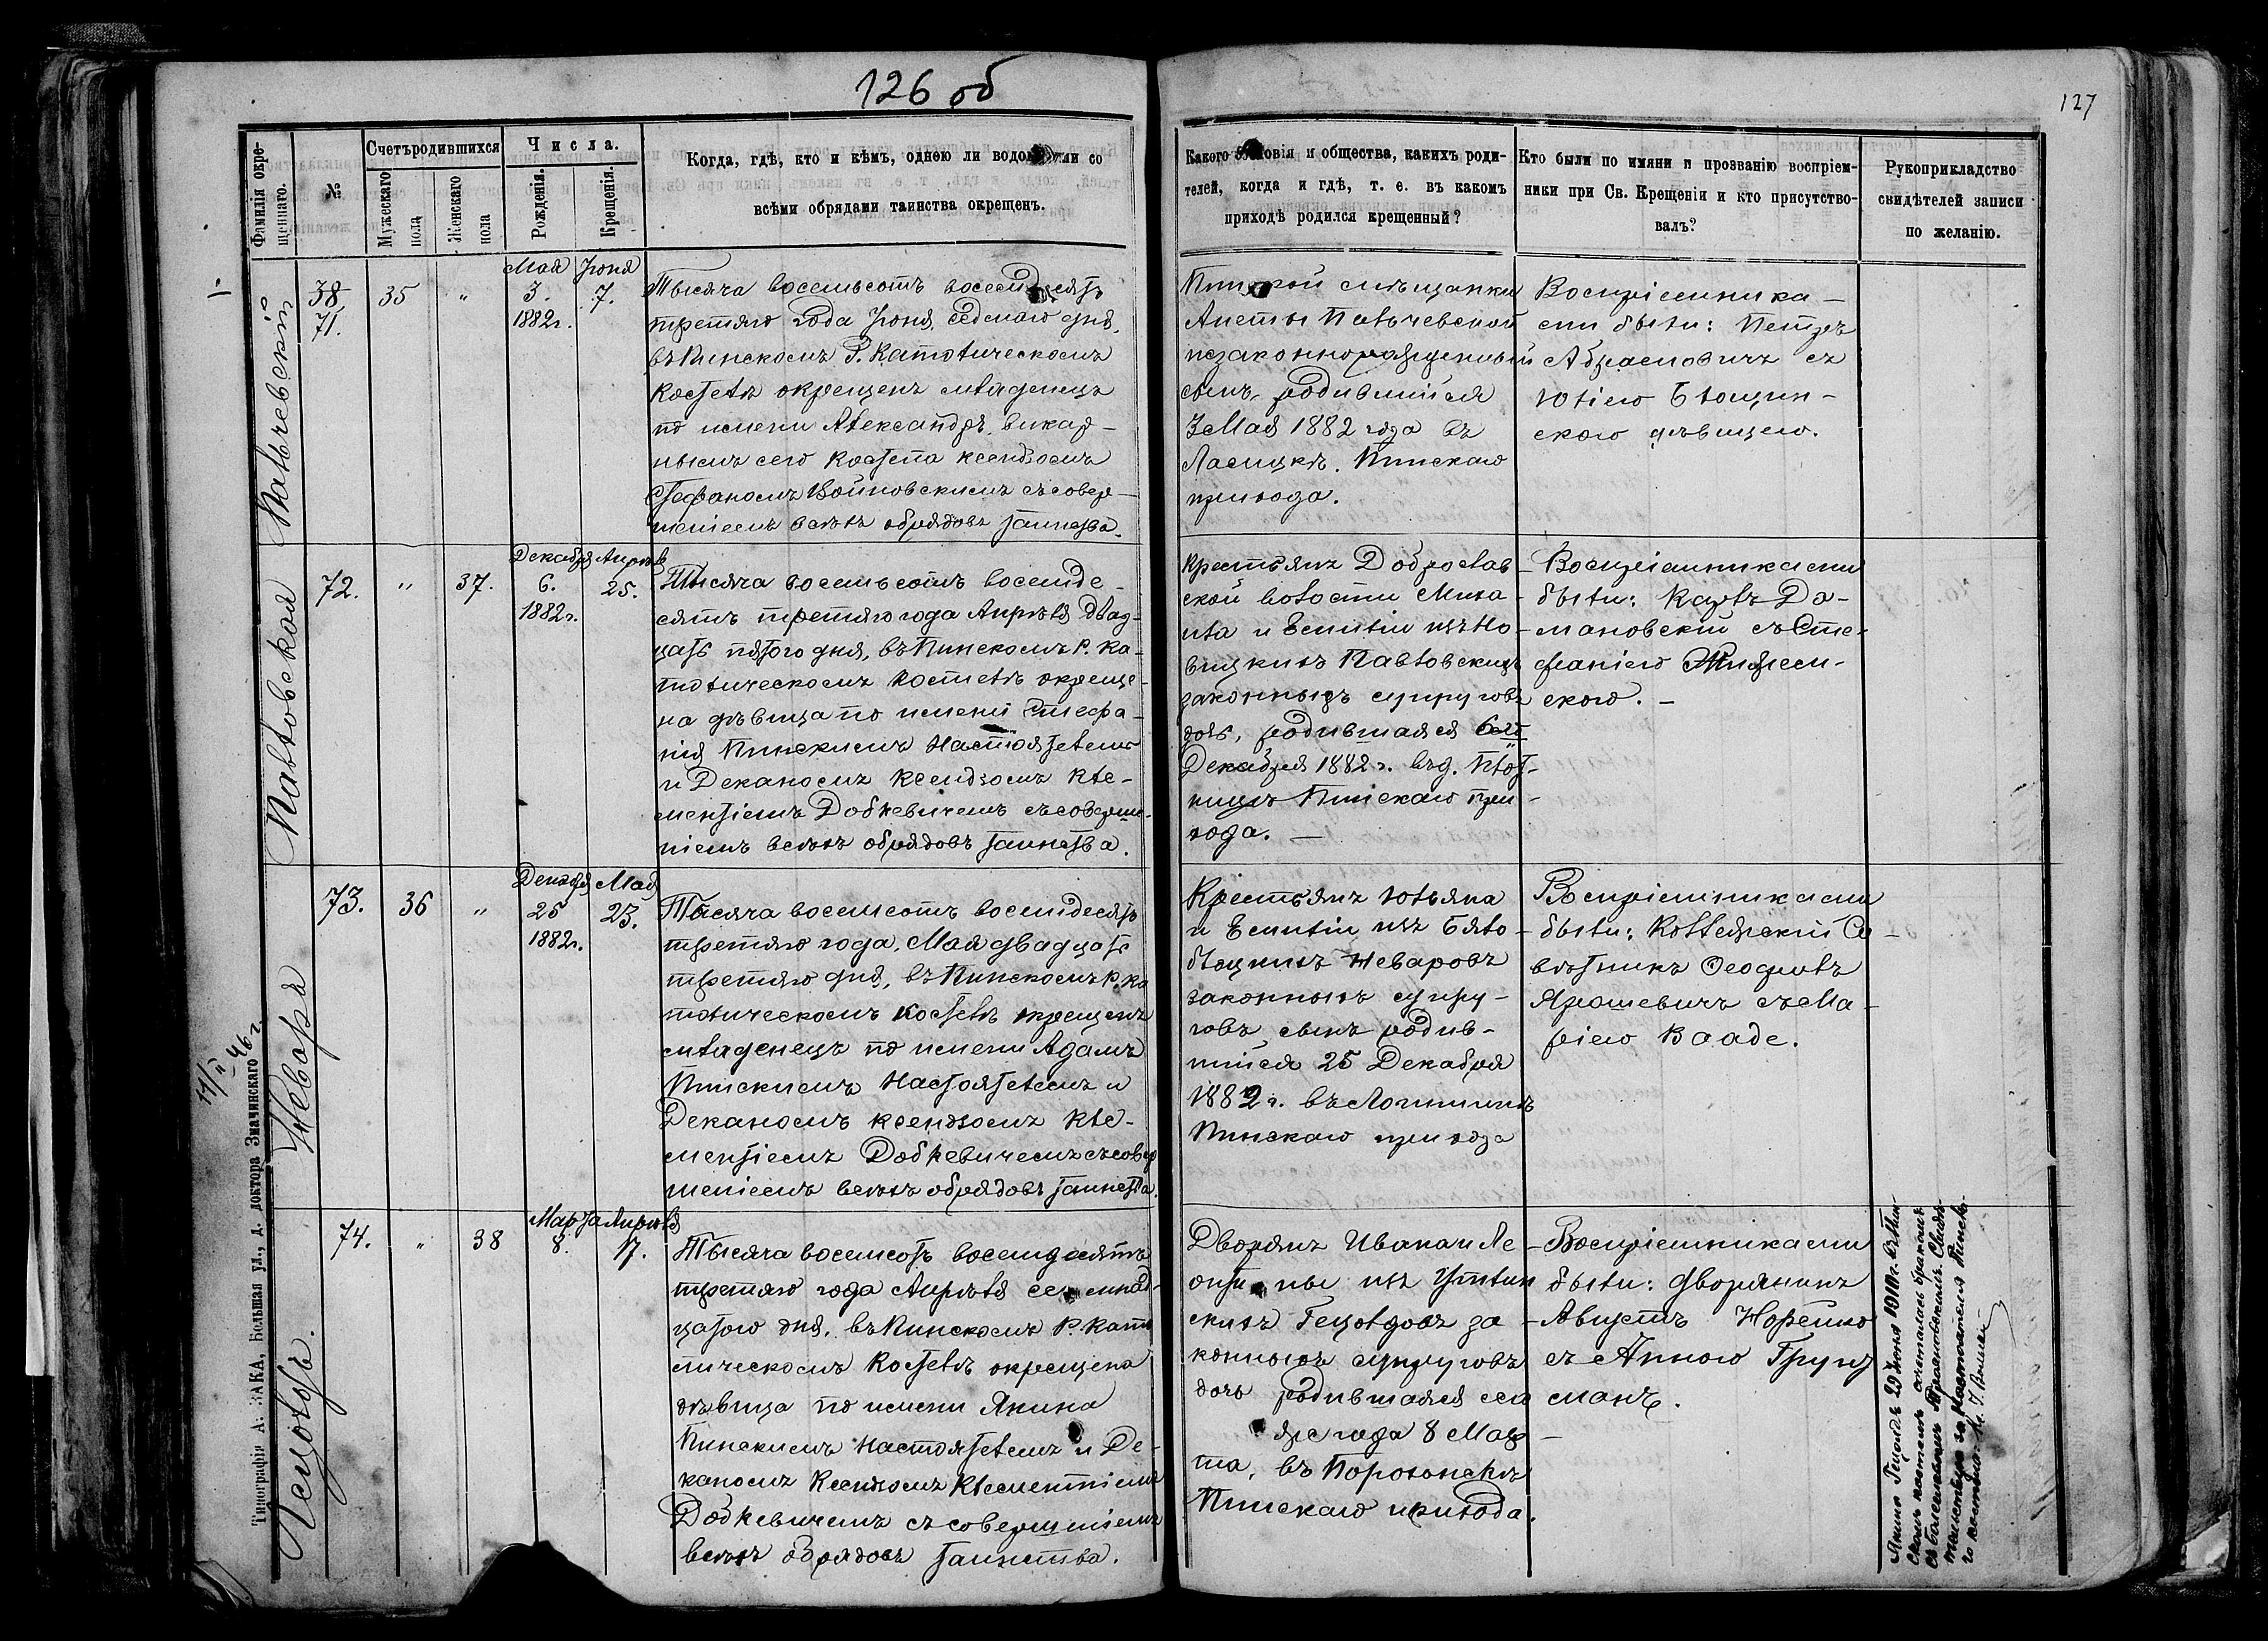 126 об
127
Фамилія окре-
щеннаго.
№
Счетъ родившихся
Мужескаго
пола
Женскаго
пола
Числа.
Рожденія.
Крещенія.
Когда, гдѣ, кто и кѣмъ, однею ли водою или со
всѣми обрядами таинства окрещенъ.
Какого сословія и общества, какихъ роди-
телей, когда и гдѣ, т. е. въ какомъ
приходѣ родился крещенный?
Кто были по имяни и прозванію воспріем-
ники при Св. Крещеніи и кто присутство-
валъ?
Рукоприкладство
свидѣтелей записи
по желанію.
38
71.
35
"
Мая
3.
1882г.
Іюня
7.
Тысяча восемьсотъ восемдесятъ
третяго года Іюня, седмаго дня,
въ Пинскомъ Р. Католическомъ
Костелѣ окрещенъ младенецъ
по имени Александръ, викар-
нымъ сего Костела ксендзомъ
Стефаномъ Войновскимъ съ совер-
шеніемъ всѣхъ обрядовъ таинства.
Пинской мѣщанки
незаконнорожденный
сынъ, родившійся
3 Мая 1882 года въ
Ласицкѣ, Пинскаго
прихода.
Воспріемника-
ми были: Петръ
Абрамовичъ съ
Юліею Блощин-
скою дѣвицею.
Павловская
72.
"
37.
Декабря
6.
1882г.
Апрѣля
25.
Тысяча восемьсотъ восемде-
сятъ третяго года Апрѣля двад-
цать пятого дня, въ Пинскомъ Р. Ка-
толическомъ Костелѣ окреще-
на дѣвица по имени Стефа-
нія Пинскимъ Настоятелемъ
и Деканомъ Ксендзомъ Кле-
ментіемъ Добкевичемъ съ соверше-
ніемъ всѣхъ обрядовъ таинства.
Крестьянъ Доброслав-
ской волости Миха-
ила и Емиліи изъ Но-
вицкихъ Павловскихъ
законныхъ супруговъ
дочь, родившаяся 6го
Декабря 1882 г. въ д. Плот-
ницѣ Пинскаго при-
хода. —
Воспріемниками
были: Карлъ До-
мановскій съ Сте-
фаніею
скою. —
Жевора
73.
36
"
Декабря
25
1882г.
Мая
23.
Тысяча восемсотъ восемдесятъ
третяго года, Мая двадцать
третяго дня, въ Пинскомъ Р. Ка
толическомъ Костелѣ окрещенъ
младенецъ по имени Адамъ
Пинскимъ Настоятелемъ и
Деканомъ Ксендзомъ Кле-
ментіемъ Добкевичемъ съ совер
шеніемъ всѣхъ обрядовъ таинства.
Крестьянъ Юльяна
и Емиліи изъ Бяло-
блоцкихъ Жеваровъ
законныхъ супру-
говъ сынъ родив-
шійся 25 Декабря
1882 г. въ Логишинѣ
Пинскаго прихода
Воспріемниками
были: Коллежскій Со-
вѣтникъ Феофилъ
Ярошевичъ съ Ма-
ріею Вааде.
Гецольдъ.
74.
"
38
Марта
8.
Апрѣля
17.
Тысяча восемсотъ восемдесятъ
третяго года Апрѣля семнад-
цатого дня, въ Пинскомъ Р. Като
лическомъ Костелѣ окрещена
дѣвица по имени Янина
Пинскимъ Настоятелемъ и Де-
каномъ Ксендзомъ Клементіемъ
Добкевичемъ съ совершеніемъ
всѣхъ обрядовъ таинства.
Дворянъ Ивана и Ле-
скихъ Гецольдовъ за-
конныхъ супруговъ
дочь родившаяся сего
же года 8 Мар-
та, въ Порохонскѣ
Пинскаго прихода.
Воспріемниками
были: дворянинъ
Августъ Норейко
съ Анною Грунд
манъ.
Типографія А. ЗАКА, Большая ул., д. доктора Значинскаго